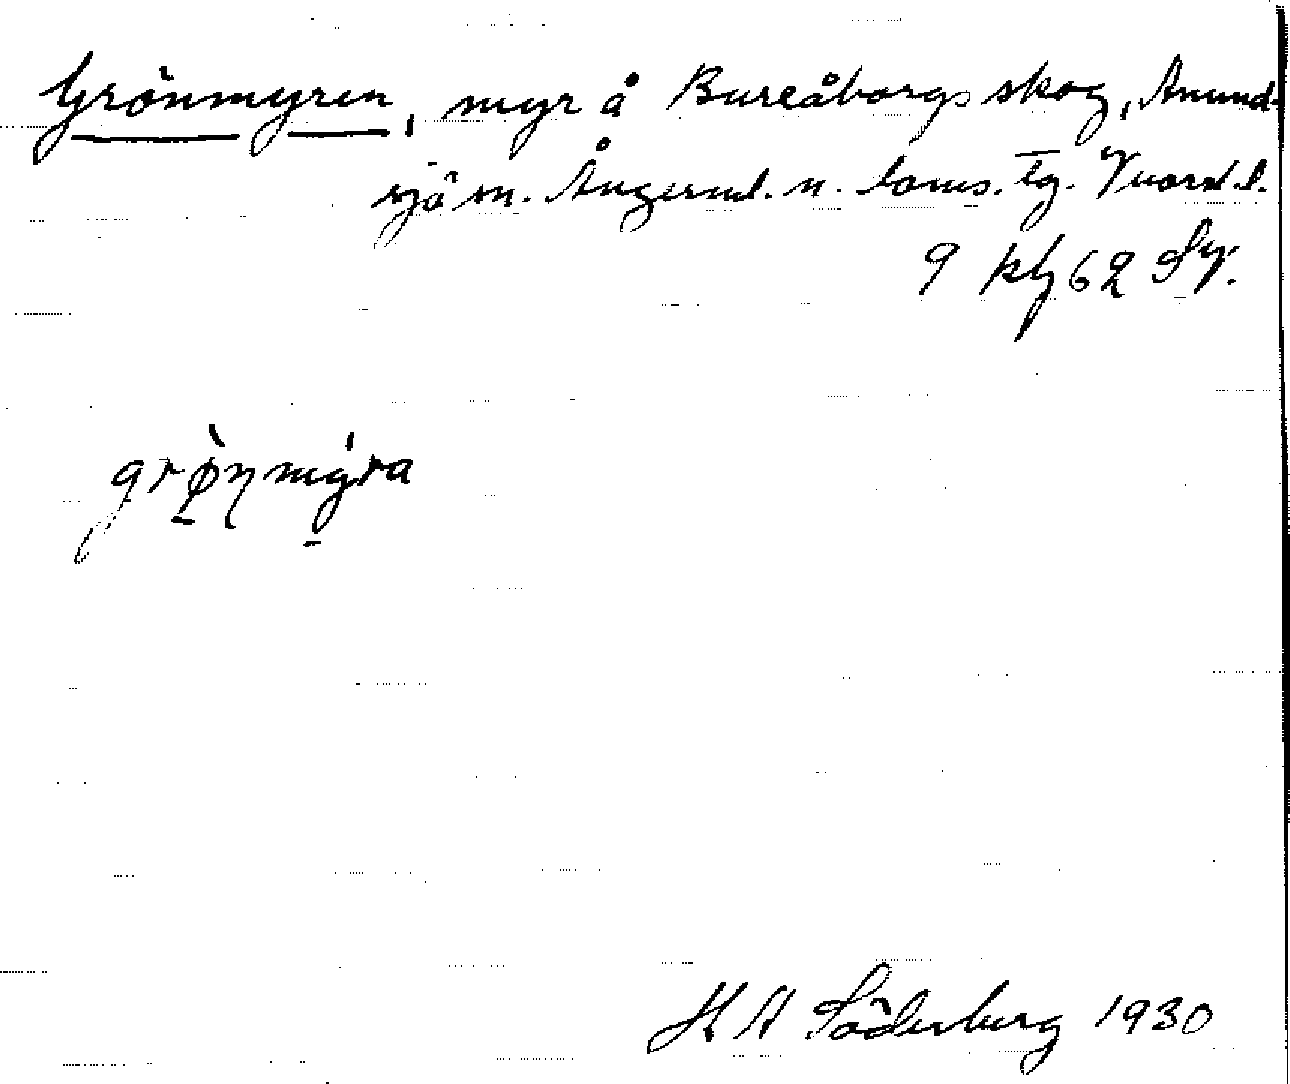 Grönmyren, myr å Bureåborgs skog, Anund-
sjö sn. Ångerml. n. doms. tg. V nord. l.
9 kh 62 Sy.
grø̀nmýra
H A Söderberg 1930